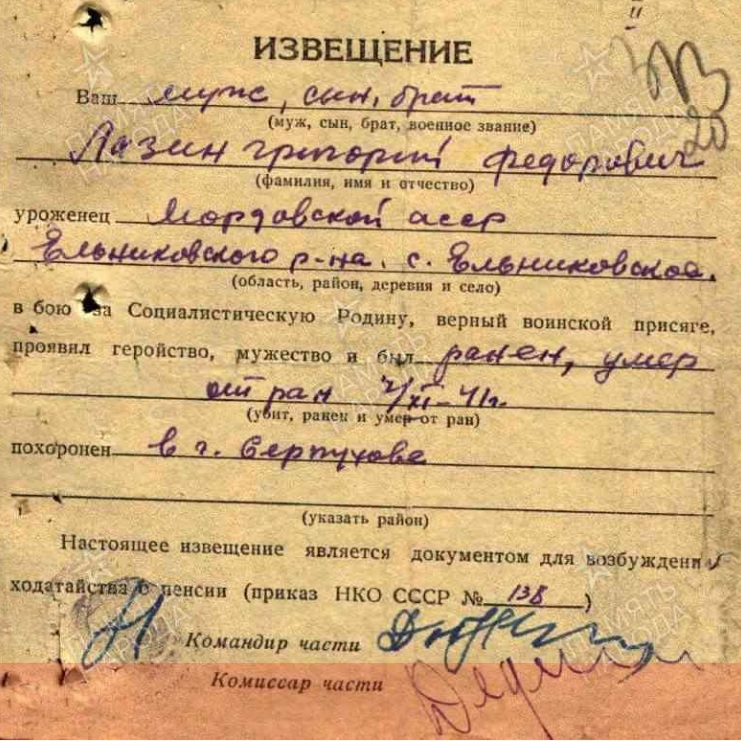 II
ИЗВЕЩЕНИЕ
Ваш муж, сын, брат
(муж, сын, брат, военное звание)
20
Лазин Григорий Федорович
(фамилия, имя и отчество)
уроженец Мордовской асер
Ельниковского р-на. с. Ельниковское.
(область, район, деревня и село)
в бою за Социалистическую Родину, верный воинской присяге,
проявил геройство, мужество и был ранен, умер
от ран 4/XI-41г.
(убит, ранен и умер от ран)
похоронен в г. Серпухове
(указать район)
Настоящее извещение является документом для возбуждени
ходатайства о пенсии (приказ НКО СССР № 138)
Командир части
Комиссар части